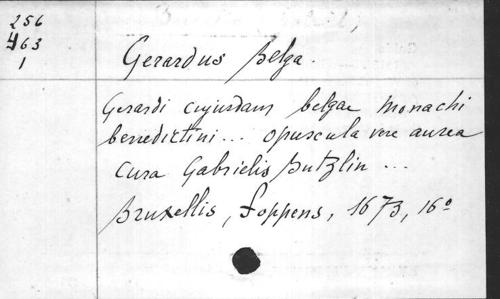 256
463
1
Gerardus Belga.
Gerardi cujusdam belgae monachi
benedictini... opuscula vere aurea
cura Gabrielis Butzlin ...
Bruxellis, Foppens, 1673, 16º